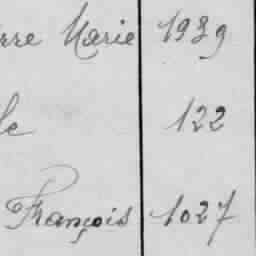 rre Marie 1939
le 122
François 1027